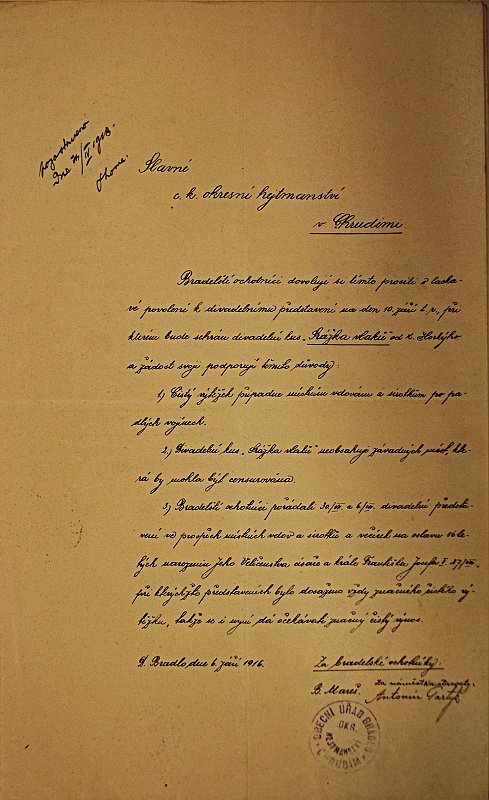 Dne
Slavné
c. k. okresní hejtmanství
v Chrudimi.
Bradelští ochotníci dovolují si tímto prositi o laska-
vé povolení k divadelnímu představení na den 10. září t. r., při
kterém bude sehrán divadelní kus „Srážka vlaků" od
a žádost svoji podporují těmito důvody:
1) Čistý výtěžek připadne místním vdovám a sirotkům po pa-
dlých vojínech.
2) Divadelní kus „Srážka vlaků" neobsahuje závadných míst, kte-
rá by mohla býti censurována.
3) Bradelští ochotníci pořádali a divadelní předsta-
vení ve prospěch místních vdov a sirotků a večírek na oslavu 86 le-
tých narozenin Jeho Veličenstva císaře a krále Františka Josefa I.
při kterýchžto představeních bylo dosaženo vždy značného čistého vý-
těžku, takže se i nyní dá očekávati značný čistý výnos.
D. Bradlo, dne 6. září 1916.
Za bradelské ochotníky:
B. Mareš.
Za náměstka starosty:
Antonín
OBECNÍ ÚŘAD BRADLO
OKR.
HEJTMANSTVÍ
CHRUDIM